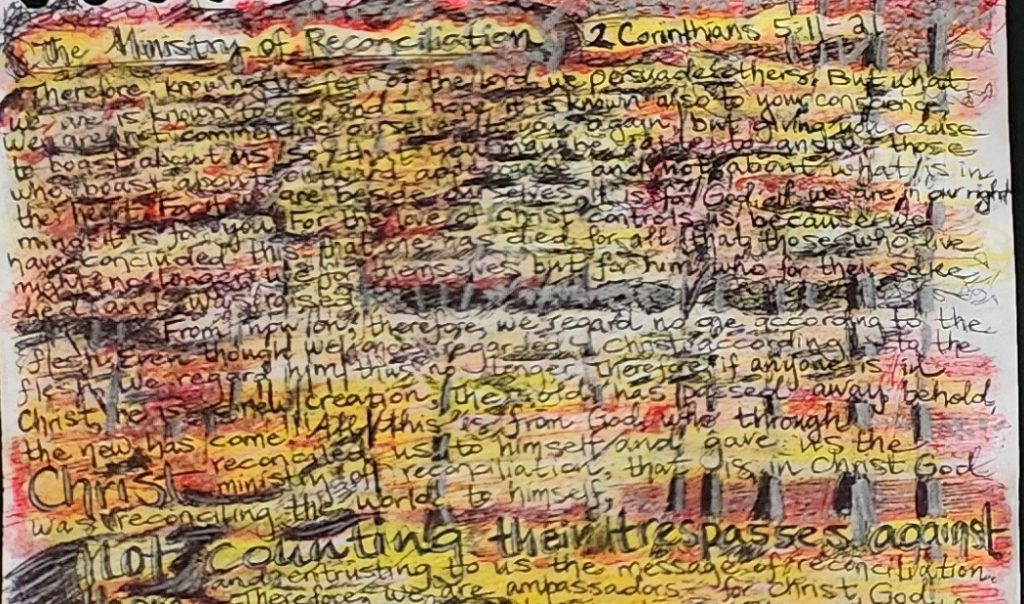 The Ministry of Reconciliation 2 Corinthians 5:11-21
Therefore, knowing the fear of the Lord, we persuade others. But what
we are is known to God, and I hope it is known also to your conscience.
We are not commending ourselves to you again, but giving you cause
to boast about us so that you may be able to answer those
who boast about outward appearance and not about what is in
the heart. For if we are beside ourselves, it is for God; if we are in our right
mind, it is for you. For the love of Christ controls us, because we
have concluded this: that one has died for all, that those who live
might no longer live for themselves but for him who for their sake
died and was raised
From now on, therefore, we regard no one according to the
flesh. Even though we once regarded Christ according to the
flesh, we regard him thus no longer. Therefore, if anyone is in
Christ, he is a new creation, the old has passed away; behold,
the new has come. All this is from God, who through
Christ reconciled us to himself and gave us the
ministry of reconciliation; that is, in Christ God
was reconciling the world to himself,
Not counting their trespasses against
and entrusting to us the message of reconciliation.
Therefore, we are ambassadors for Christ, God